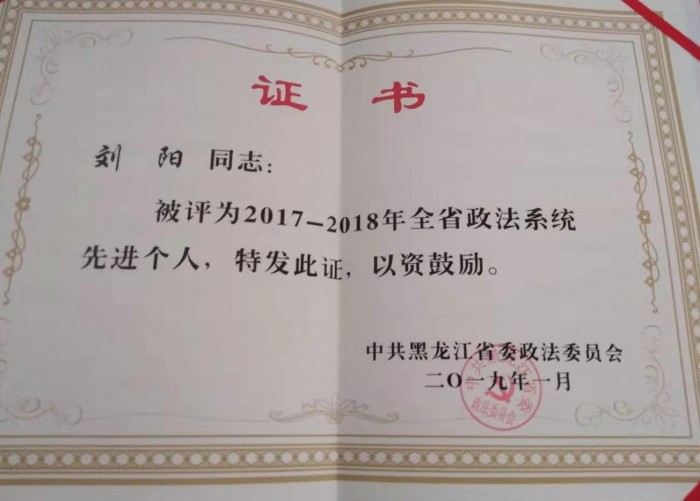 证 书
刘 阳 同志：
被评为2017-2018年全省政法系统
先进个人，特发此证，以资鼓励。
中共黑龙江省委政法委员会
二〇一九年一月
中共黑龙江省委
政法委员会